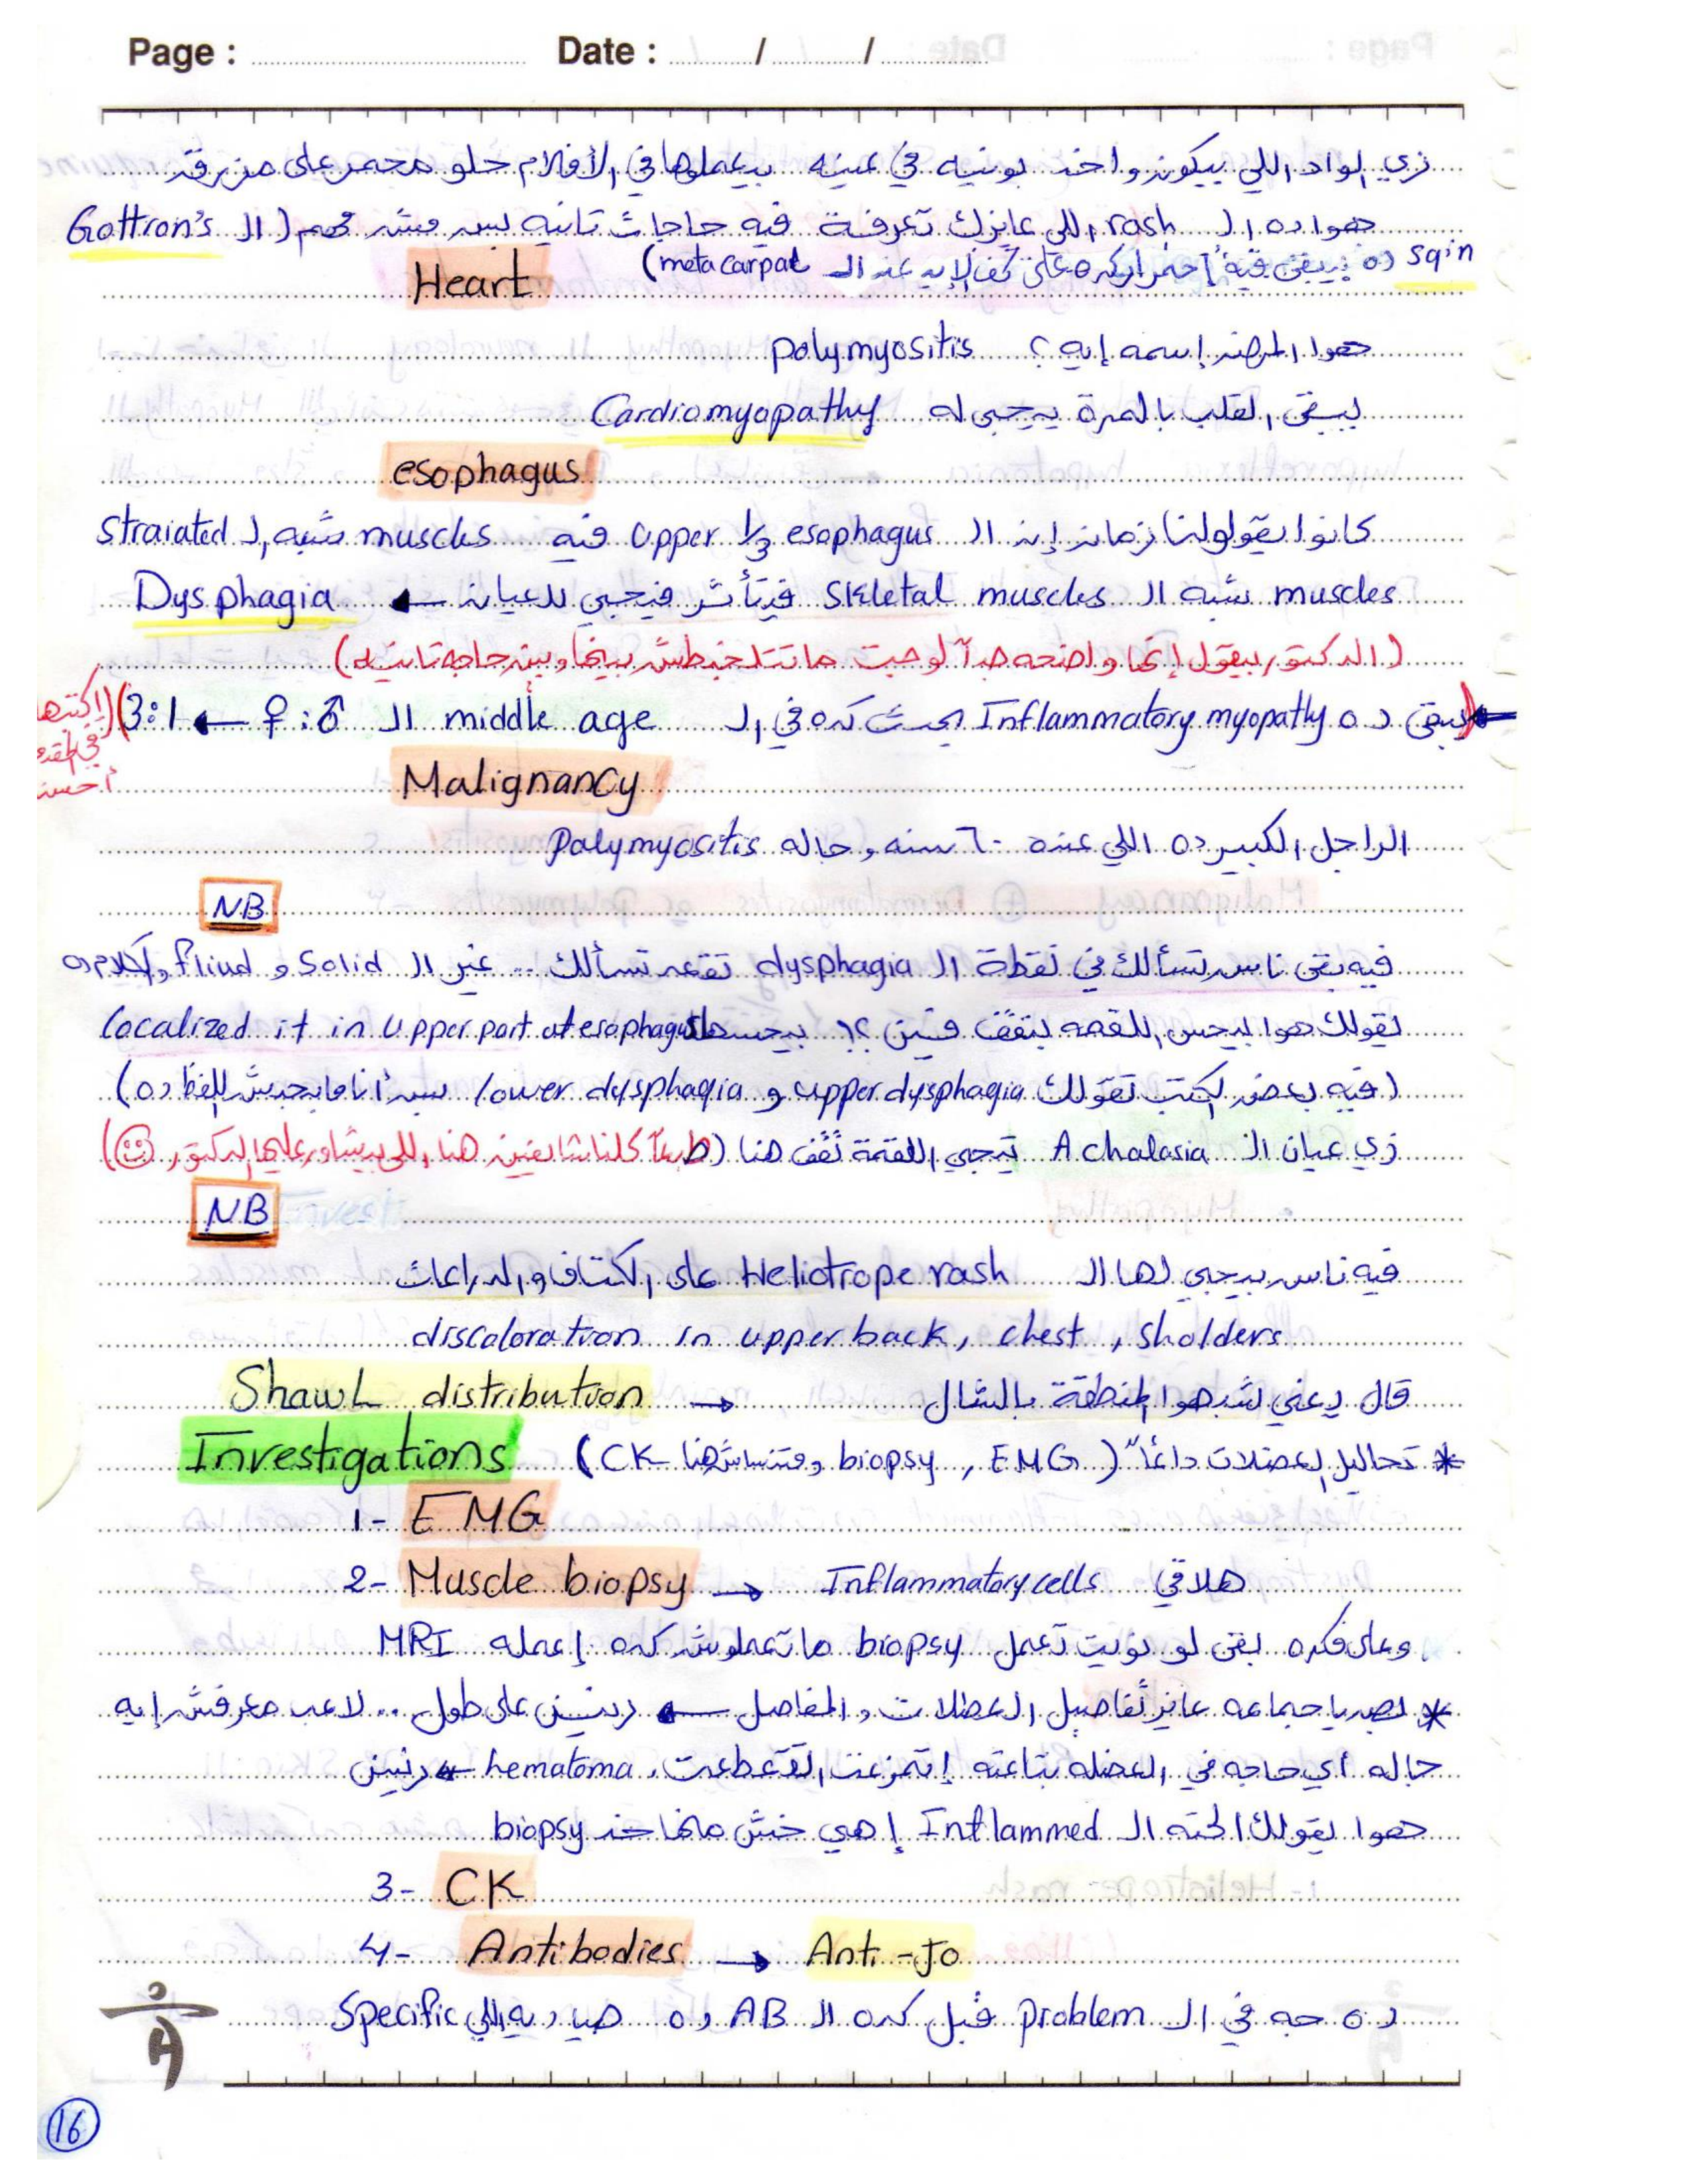 Page : Date : / /
زي الواد اللي بيكون واخد بونيه في عينه بيعملوها في الأفلام حلو محمر على مزرق
هوا ده الـ rash اللي عايزك تعرفة فيه حاجات تانيه بس مش مهم (الـ Gottron's
sqin ده بيبقى فيه احمرار كده على كف الإيد عند الـ metacarpal)
Heart
هوا المرض إسمه إيه؟ polymyositis
يبقى القلب بالمرة يجيله Cardiomyopathy
esophagus
كانوا بيقولولنا زمان إن الـ upper 1/3 esophagus فيه muscles شبه الـ straiated
muscles شبه الـ skeletal muscles فتتأثر فيجي للعيان ← Dysphagia
(الدكتور بيقول إنها واضحه جداً لو جت ماتتلخبطش بينها وبين حاجه تانيه)
(يبقى ده Inflammatory myopathy يحدث كده في الـ middle age الـ ♂ : ♀ ← 3:1) (إكتبها
في
أحسن
Malignancy
الراجل الكبير ده اللي عنده ٦٠ سنه وجاله Polymyositis
NB
فيه بقى ناس تسألك في نقطة الـ dysphagia تقعد تسألك .. غير الـ Solid و fliud والكلام ده
يقولك هوا بيحس اللقمه بتقف فين؟! بيحسها localized it in upper part of esophagus
(فيه بعض الكتب تقولك upper dysphagia و lower dysphagia بس أنا مابحبش اللفظ ده)
زي عيان الـ Achalasia تيجي اللقمة تقف هنا (طبعاً كلنا شايفين هنا اللي بيشاور عليها الدكتور)
NB
فيه ناس بيجي لها الـ Heliotrope rash على الكتاف والدراعات
discoloration in upper back, chest, sholders
قال يعني شبهوا المنطقة بالشال → Shawl distribution
Investigations * تحاليل العضلات دائماً (EMG , biopsy ومتنساش هنا CK)
1- EMG
2- Muscle biopsy → Inflammatory cells هلاقي
وعلى فكره بقى لو نويت تعمل biopsy ماتعملوش كده إعمله MRI
* بصو يا جماعه عايز تفاصيل العضلات والمفاصل ← رنين على طول ... لاعب معرفش إيه
جاله أي حاجه في العضله بتاعته إتمزعت، اتقطعت، hematoma ← رنين
هوا يقولك الحته الـ Inflammed إهي خش منها خد biopsy
3- CK
4- Antibodies → Anti-Jo
ده جه في الـ problem قبل كده الـ AB ده هيا ديه اللي Specific
16